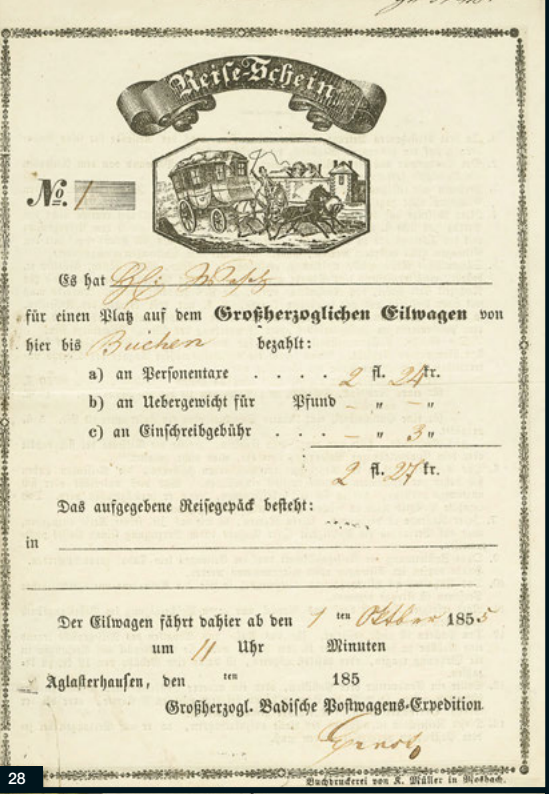 Reise-Schein
No. 1
Es hat
für einen Platz auf dem Großherzoglichen Eilwagen von
hier bis Buchen bezahlt:
a) an Personentaxe . . . . 2 fl. 24 kr.
b) an Uebergewicht für Pfund – „ – „
c) an Einschreibgebühr . . . – „ 3 „
2 fl. 27 kr.
Das aufgegebene Reisegepäck besteht:
in
Der Eilwagen fährt dahier ab den ten Oktber 1855
um 11 Uhr Minuten
Aglasterhausen, den ten 185
Großherzogl. Badische Postwagens-Expedition.
Buchdruckerei von K. Müller in Mosbach.
28